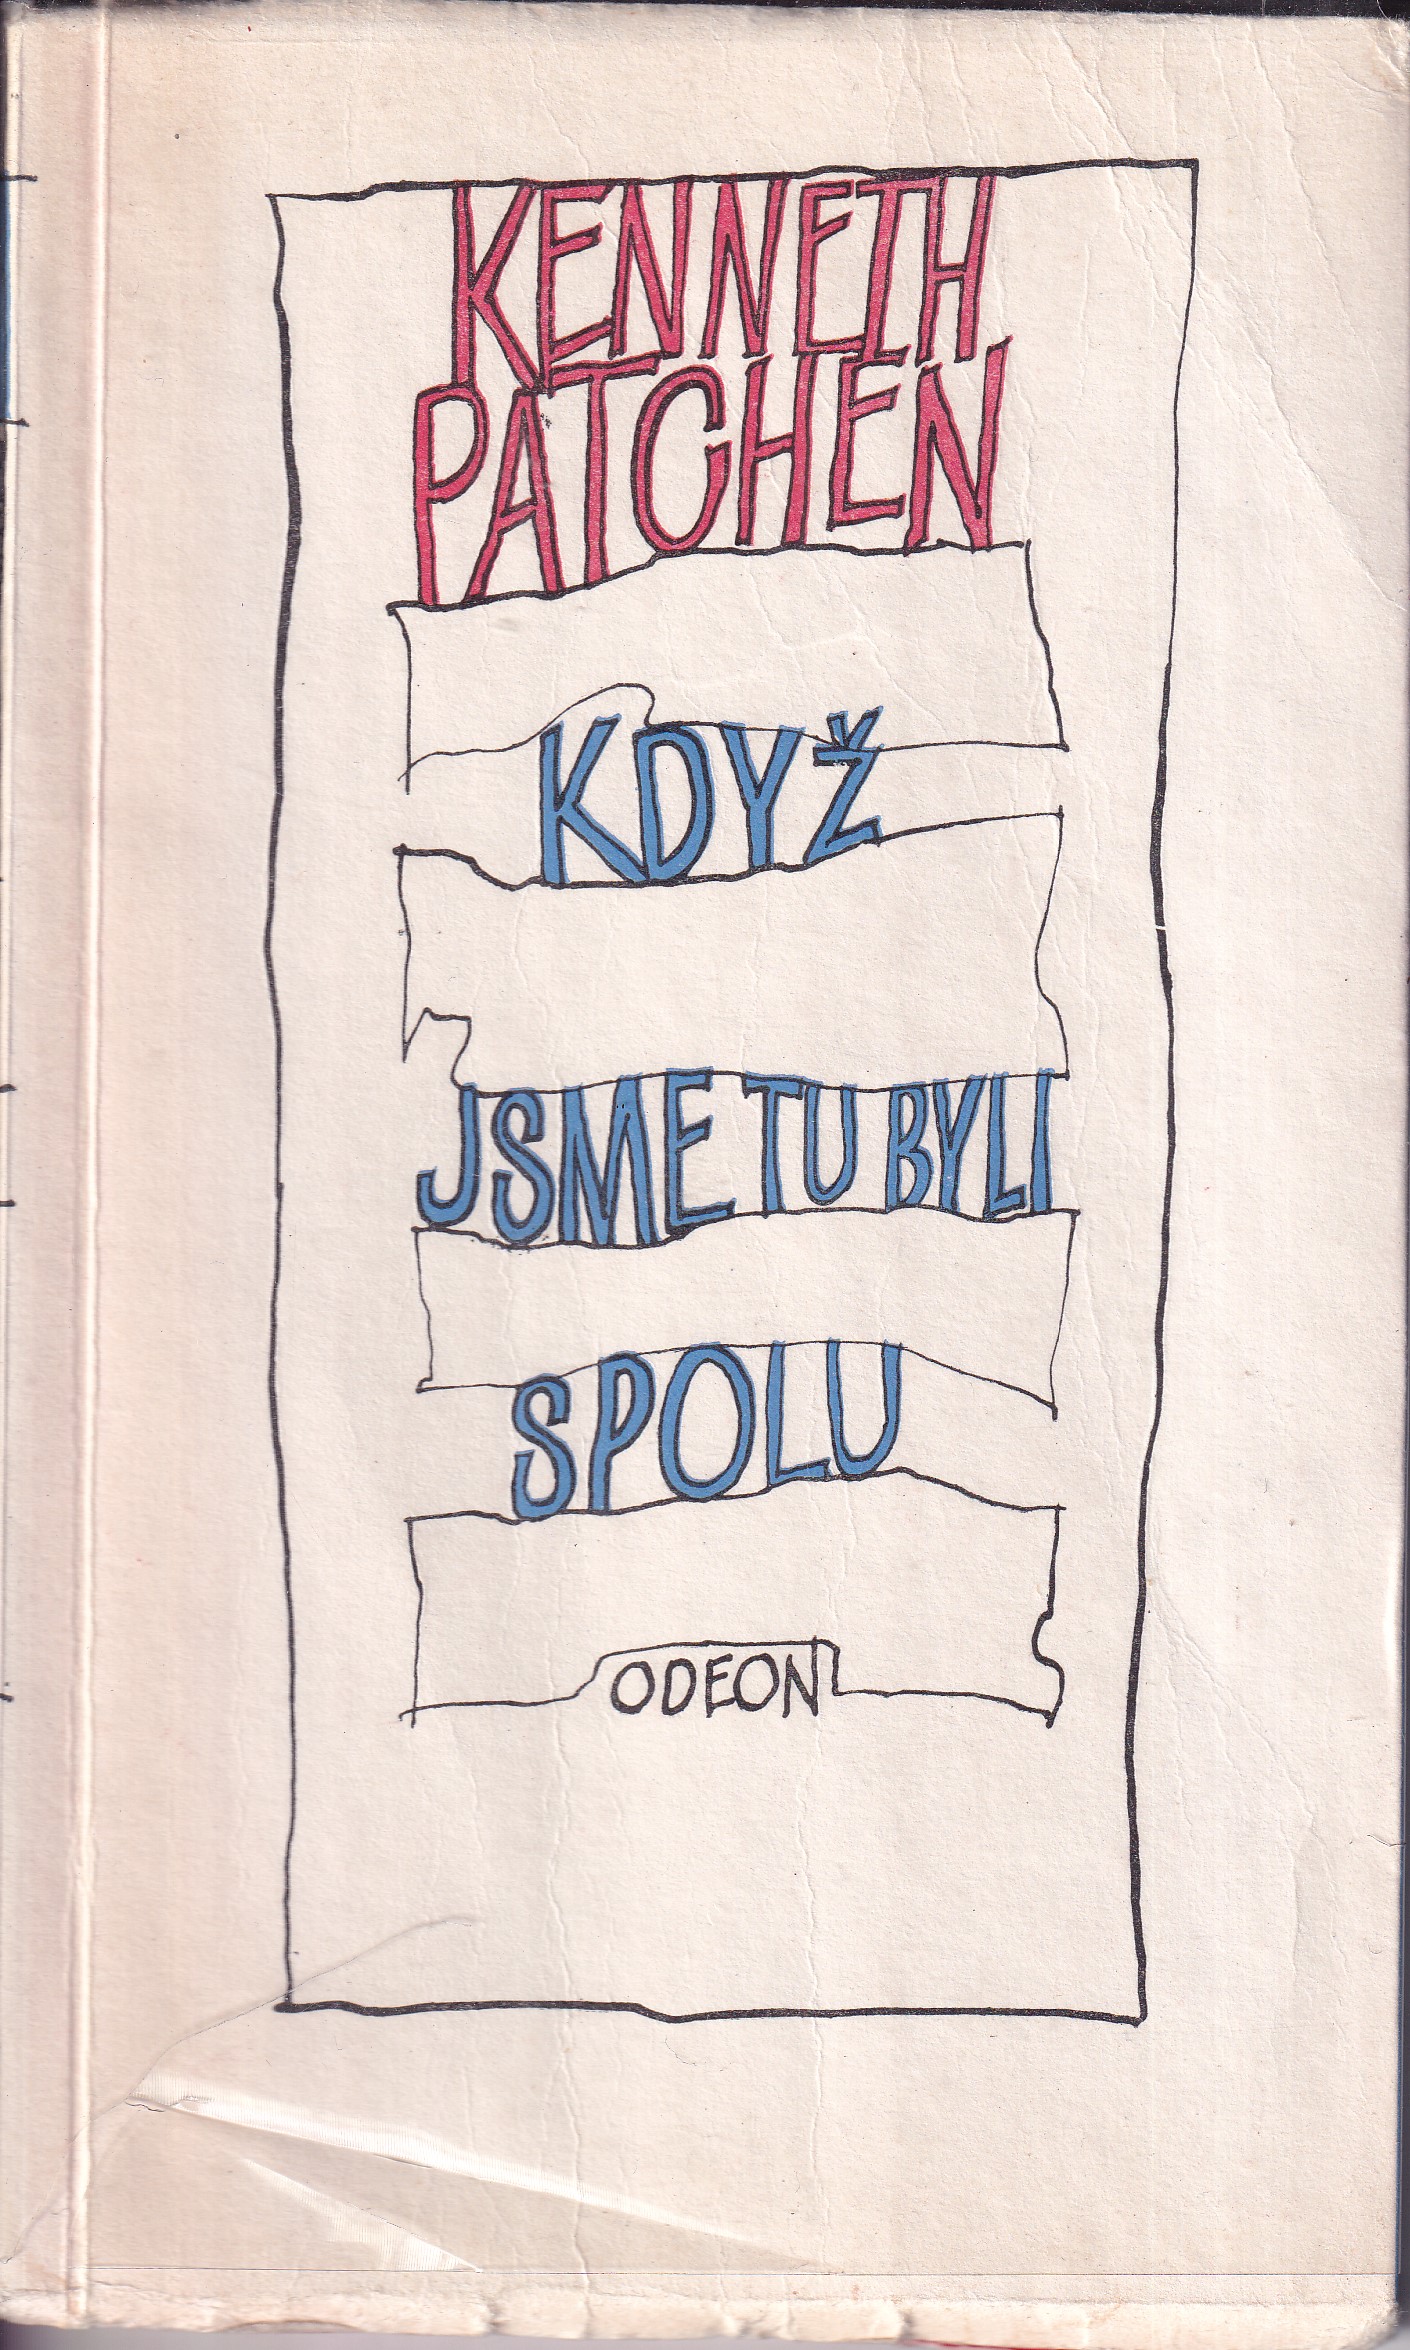 KENNETH
PATCHEN
KDYŽ
JSME TU BYLI
SPOLU
ODEON